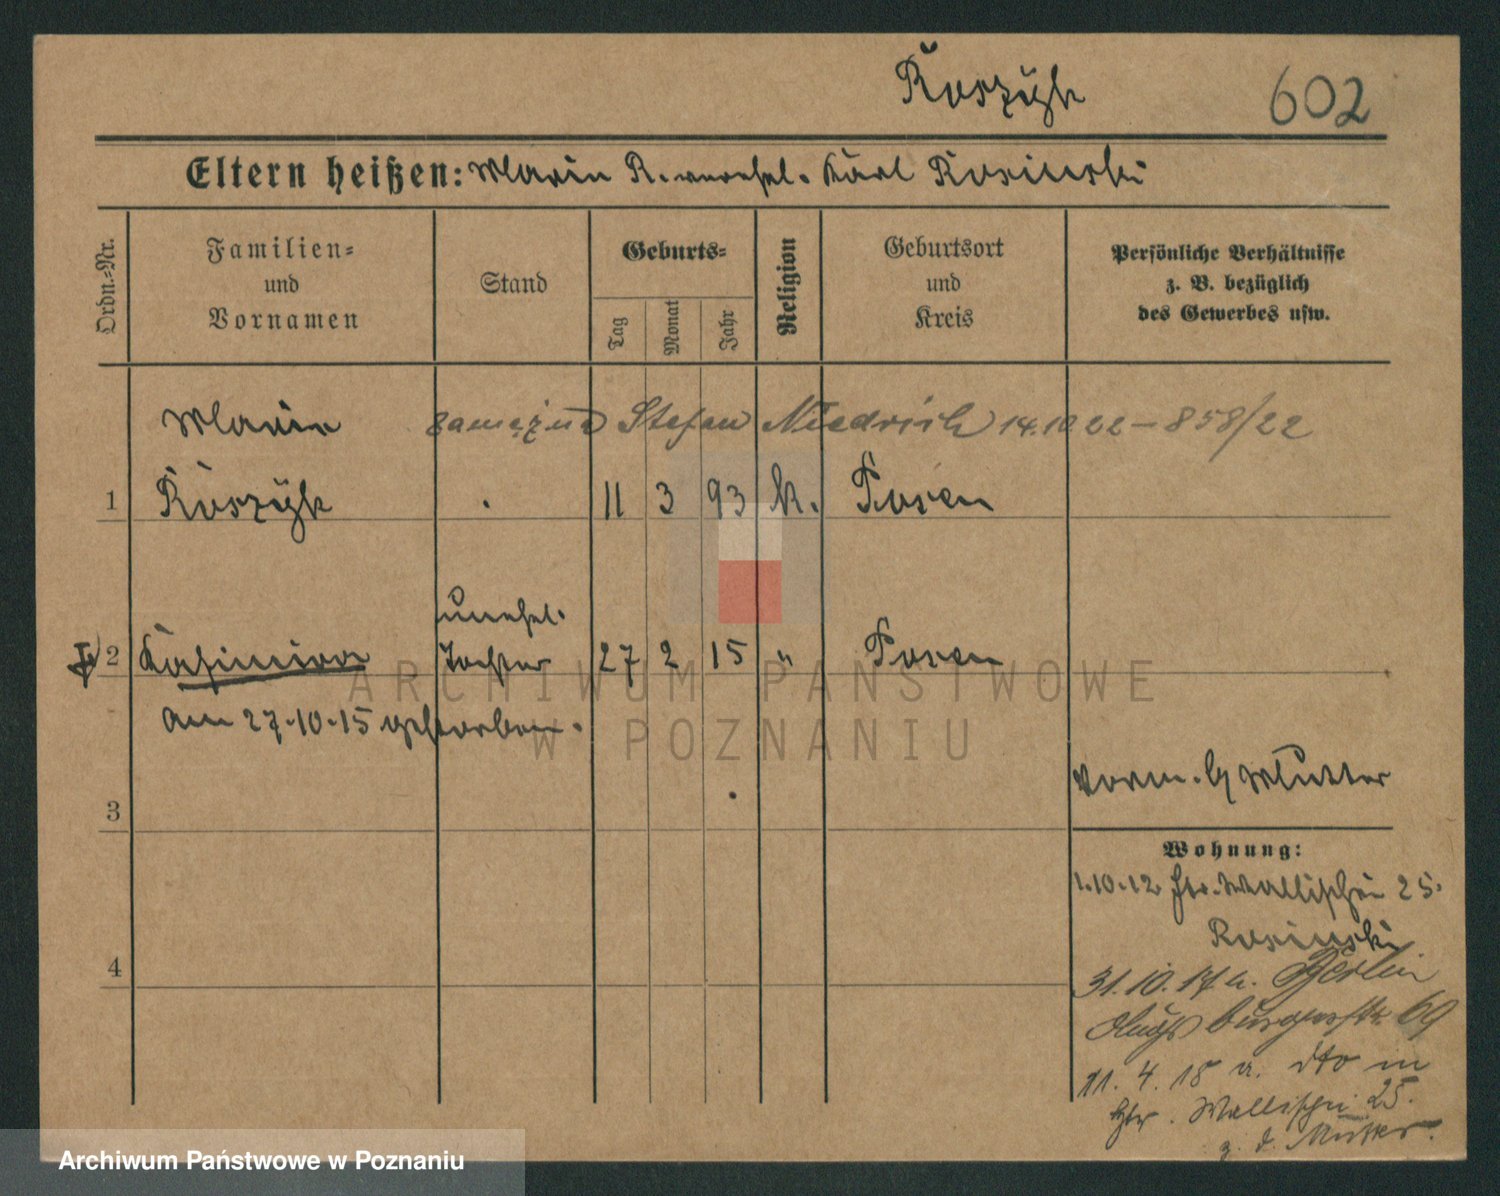 Kuszyk
602
Eltern heißen: Maria R. verehel. Karl Rosinski
Ordn.-Nr.
Familien-
und
Vornamen
Stand
Geburts-
Tag
Monat
Jahr
Religion
Geburtsort
und
Kreis
Persönliche Verhältnisse
z. B. bezüglich
des Gewerbes usw.
Maria zamężna Stefan Niedrich 14.10 22 – 858/22
1 11 3 93 k. Posen
unehel.
2 Kasimira Tochter 27 2 15 " Posen
am 27.10.15 gestorben.
3
vorm. G Mutter
Wohnung:
1.10.12 Wallischei 25.
Rosinski
4
31.10.17 a. Berlin
Augsburgerstr. 69
11. 4. 18 a. dto in
Wallischei 25.
z. d. Mutter.
ARCHIWUM PAŃSTWOWE
W POZNANIU
Archiwum Państwowe w Poznaniu